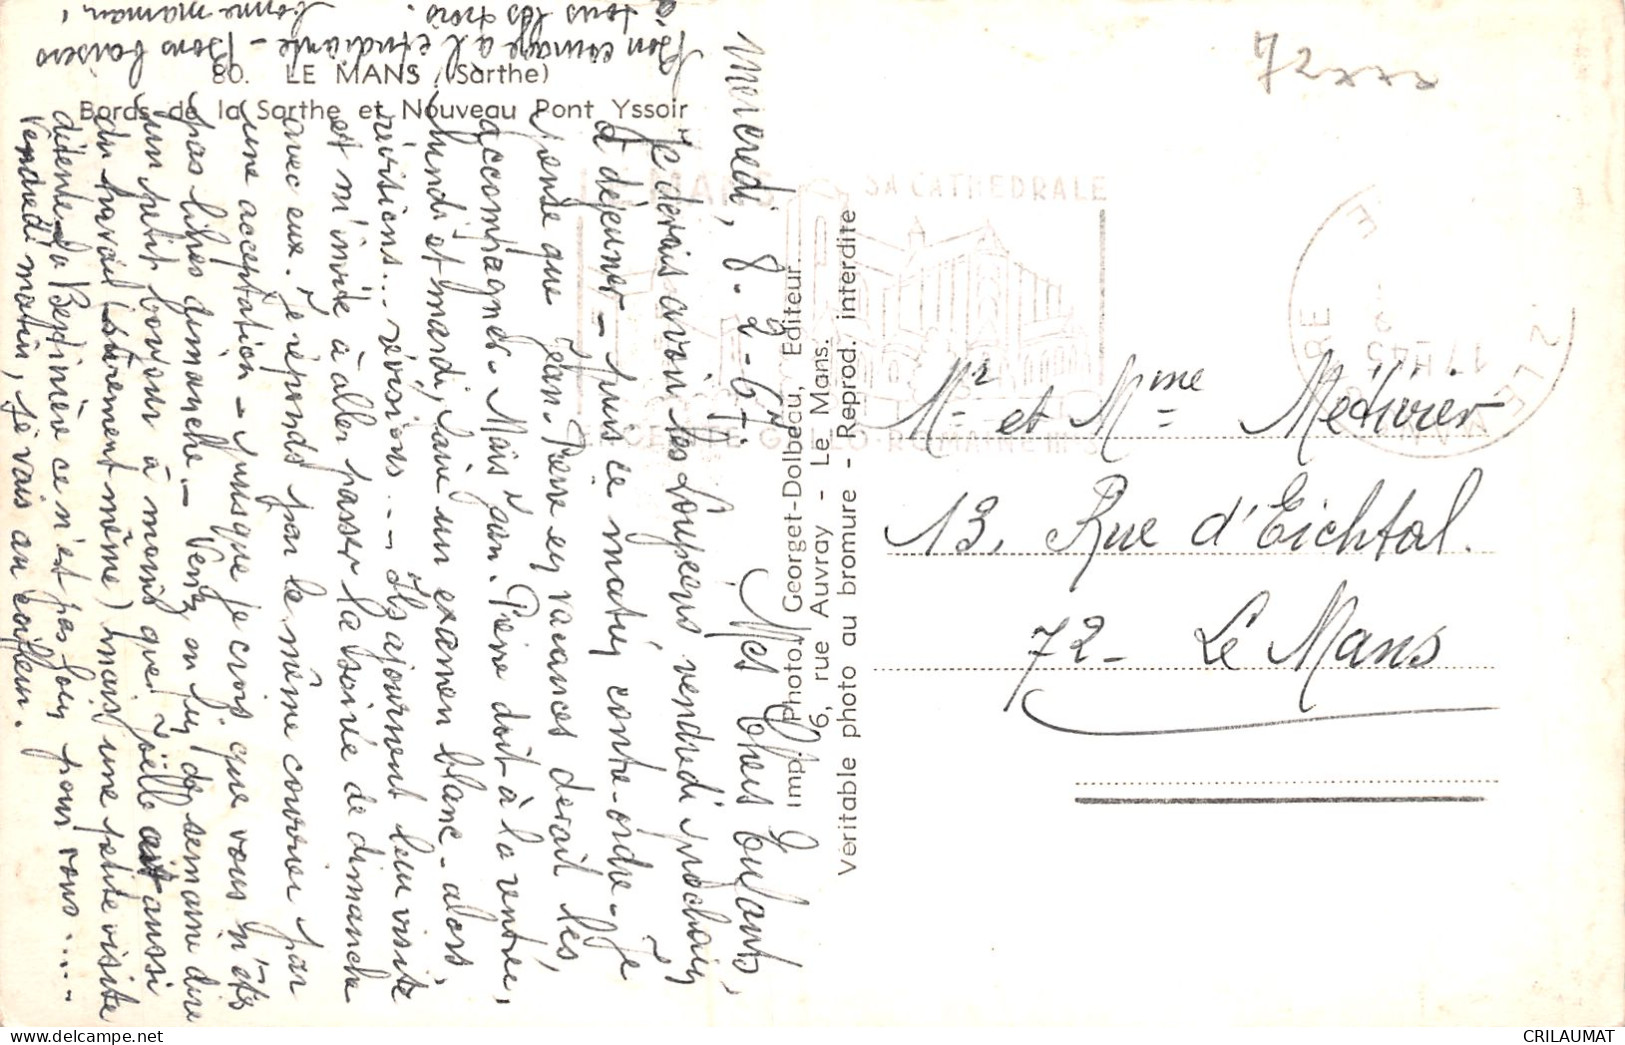 80. LE MANS (Sarthe)
Bords de la Sarthe et Nouveau Pont Yssoir
Mercredi, 8-2-67.
Mes chers enfants,
Je devais avoir les vendredi prochain
à déjeuner - puis ce matin contre-ordre - Je
pense que Jean-Pierre en vacances devait les
accompagner. Mais Jean-Pierre doit à la rentrée,
lundi et mardi, faire un examen blanc - alors,
révisions... révisions... Ils ajournent leur visite
et m'invite à aller passer la soirée de dimanche
avec eux. Je réponds par le même courrier par
une acceptation - puisque je crois que vous n'êtes
pas libres dimanche. - Venez en fin de semaine dire
un petit bonjour à moins que Joëlle ait aussi
du travail (sûrement même) mais une petite visite
détente
à Bexinière ce n'est pas loin pour vous.....
Vendredi matin, je vais au coiffeur.
Bon courage à l'étudiante - Bons baisers
à tous les trois.
bonne maman,
Imp. Photo. Georget-Dolbeau, Editeur
6, rue Auvray - Le Mans.
Véritable photo au bromure - Reprod. interdite
LE MANS
SA CATHEDRALE
ENCEINTE GALLO-ROMAINE IIIe S
17H45
72 LE MANS
72xxx
Mr et Mme Métivier
13, Rue d'Eichtal.
72 - Le Mans
CRILAUMAT